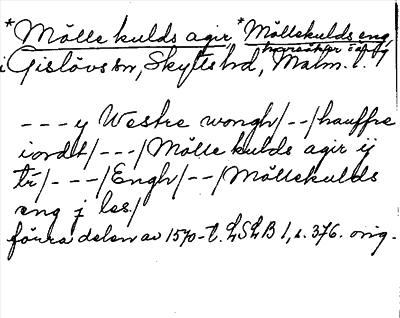 *Mölle kulds agir, *Möllekulds eng,
i Gislövs sn, Skytts hd, Malm. l.
- - - y Westre wongh/--/hauffre
iordt/---/Mölle kulds agir ij
tr/---/Engh/--/Möllekulds
eng j les/
förra delen av 1570-t. LSLB 1, s. 376. orig.